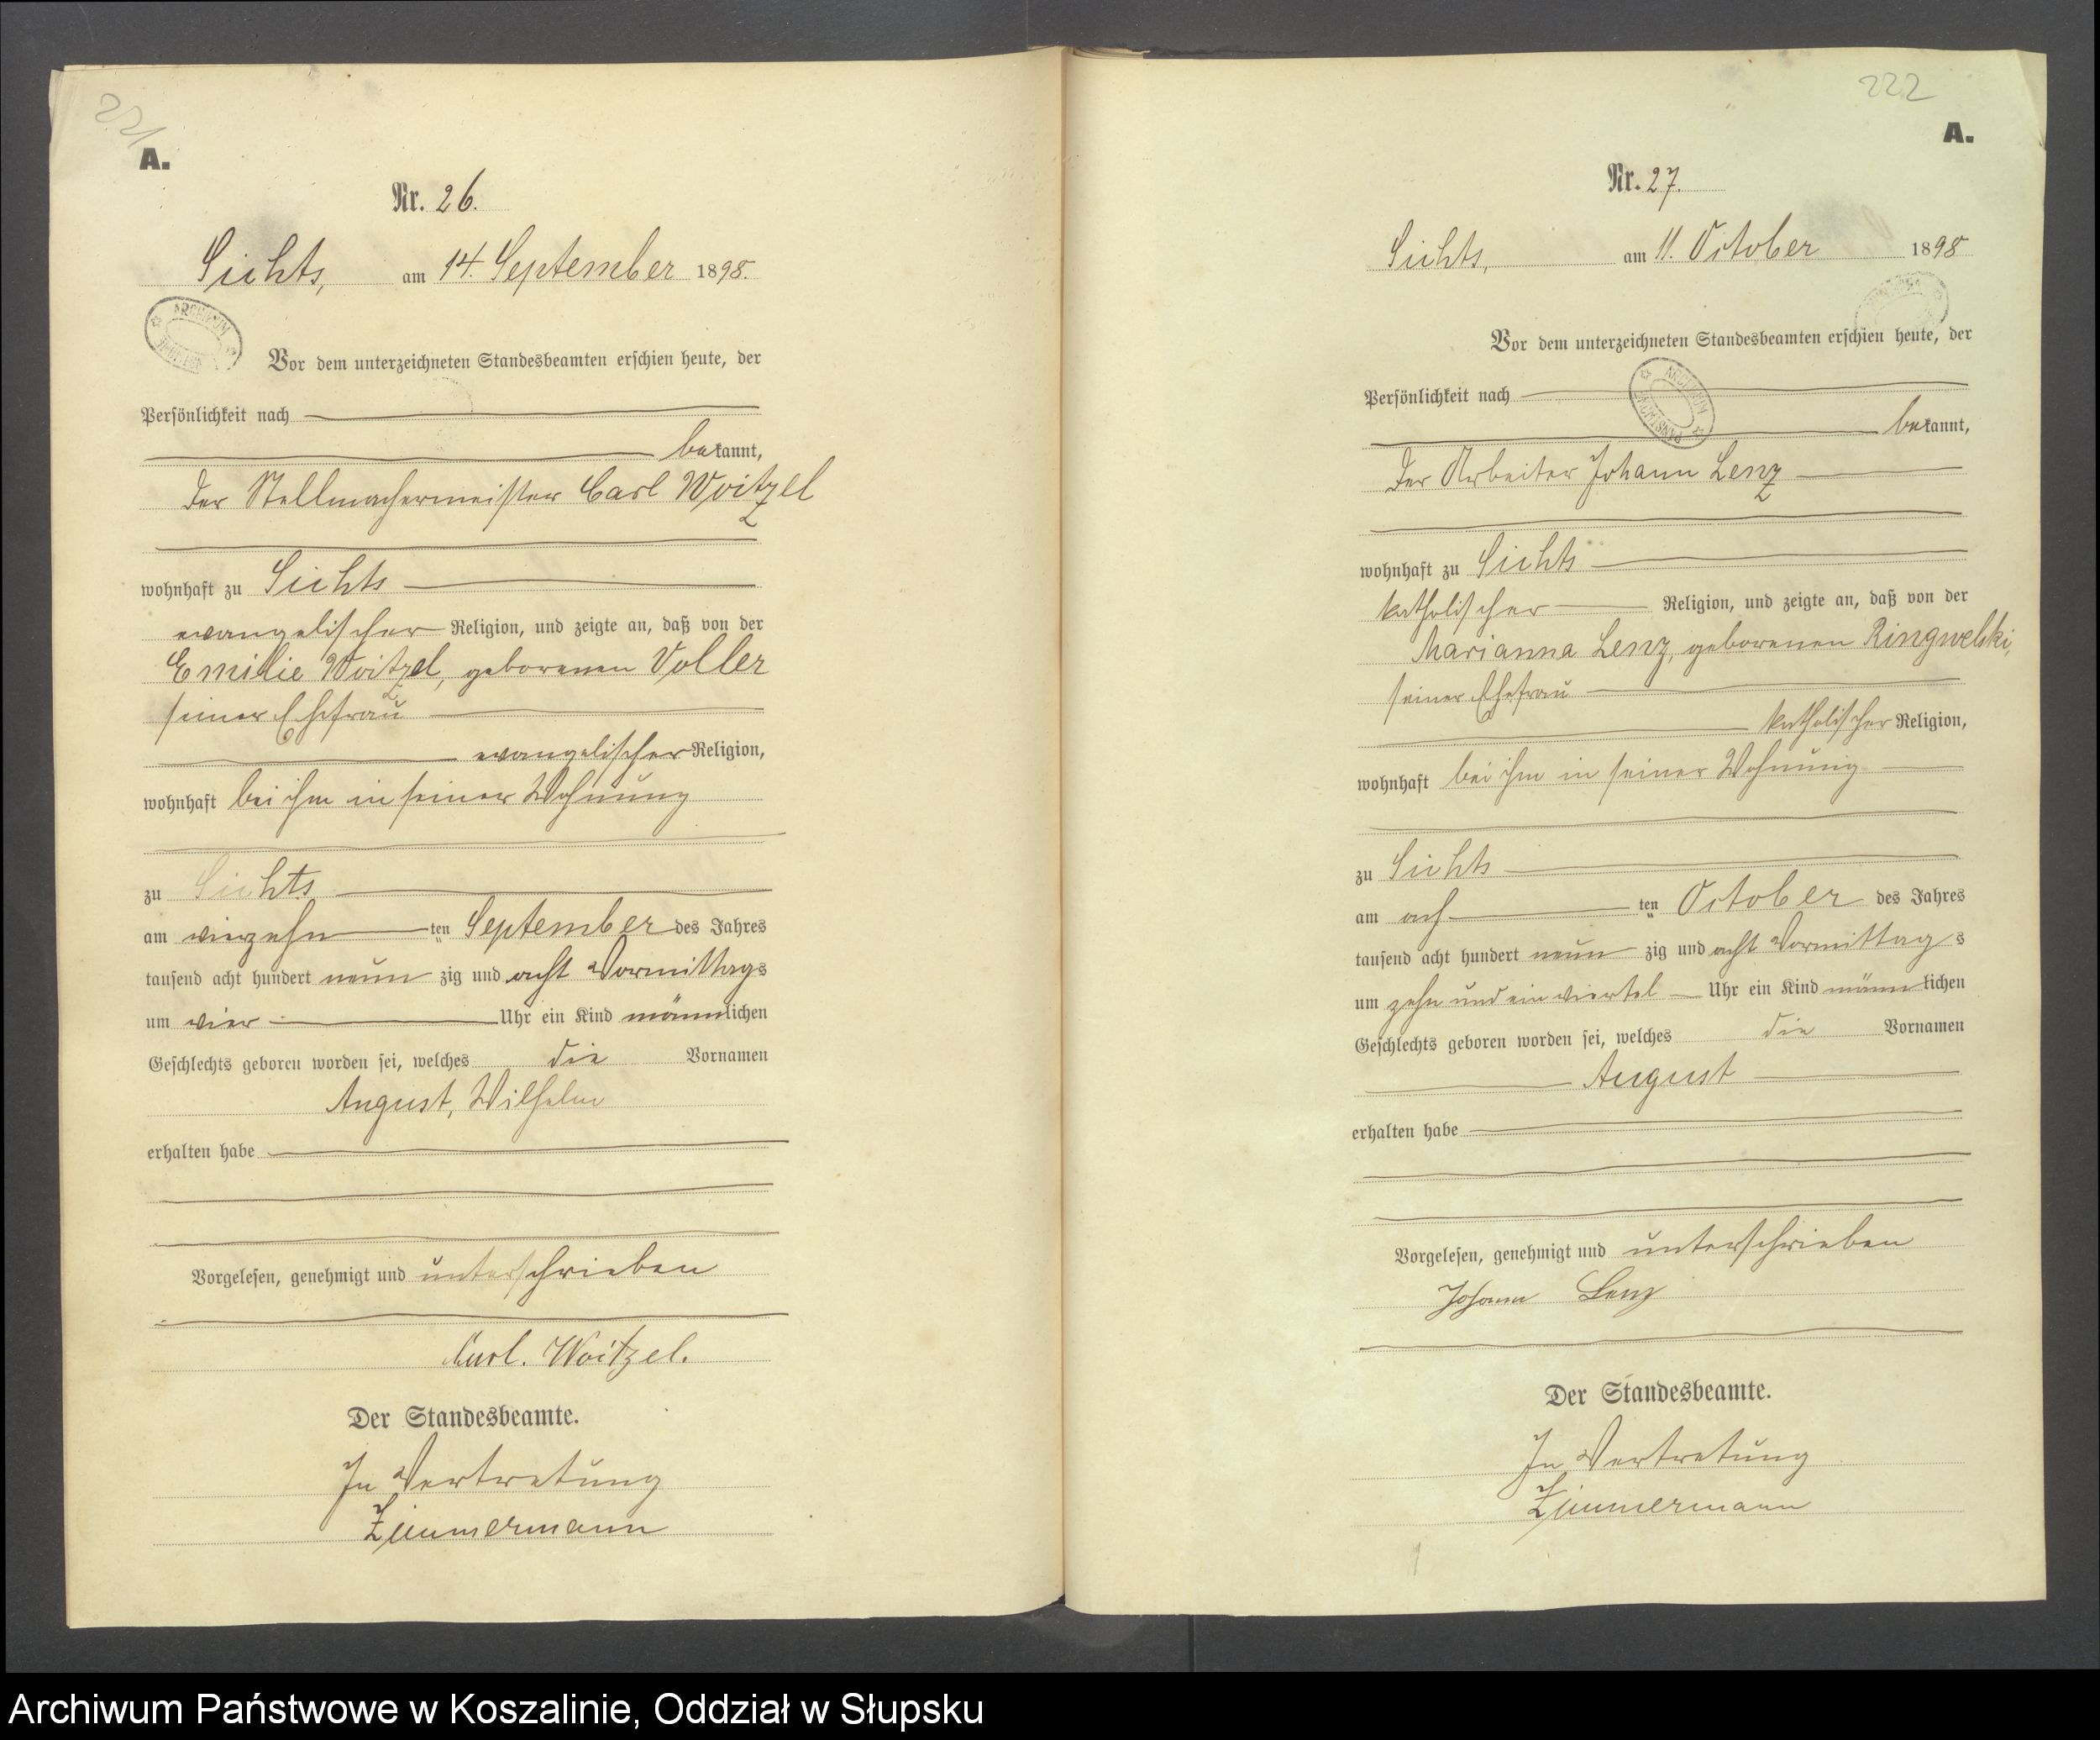 221
A.
Nr. 26.
Sichts, am 14. September 1898.
ARCHIWUM
Vor dem unterzeichneten Standesbeamten erschien heute, der
Persönlichkeit nach
bekannt,
der Stellmachermeister Carl Woitzel
wohnhaft zu Sichts
evangelischer Religion, und zeigte an, daß von der
Emilie Woitzel, geborenen Voller
seiner Ehefrau
evangelischer Religion,
wohnhaft bei ihm in seiner Wohnung
zu Sichts
am vierzehn ten September des Jahres
tausend acht hundert neun zig und acht Vormittags
um vier Uhr ein Kind männlichen
Geschlechts geboren worden sei, welches die Vornamen
August, Wilhelm
erhalten habe
Vorgelesen, genehmigt und unterschrieben
Carl. Woitzel.
Der Standesbeamte.
In Vertretung
Zimmermann
222
A.
Nr. 27.
Sichts, am 11. October 1898
Vor dem unterzeichneten Standesbeamten erschien heute, der
Persönlichkeit nach
ARCHIWUM PAŃSTWOWE
bekannt,
der Arbeiter Johann Lenz
wohnhaft zu Sichts
katholischer Religion, und zeigte an, daß von der
Marianna Lenz, geborenen Ringwelski,
seiner Ehefrau
katholischer Religion,
wohnhaft bei ihm in seiner Wohnung
zu Sichts
am ach ten October des Jahres
tausend acht hundert neun zig und acht Vormittags
um zehn und ein viertel Uhr ein Kind männlichen
Geschlechts geboren worden sei, welches die Vornamen
August
erhalten habe
Vorgelesen, genehmigt und unterschrieben
Johann Lenz
Der Standesbeamte.
In Vertretung
Zimmermann
Archiwum Państwowe w Koszalinie, Oddział w Słupsku